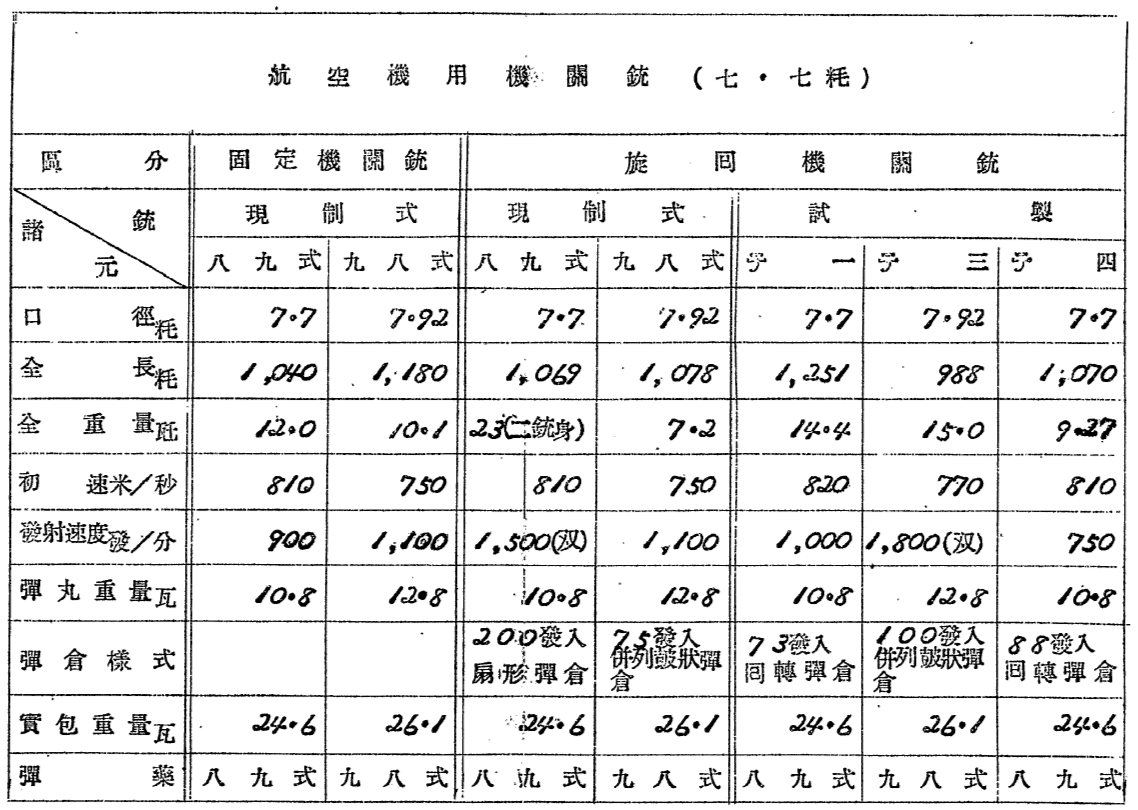 航空機用機關銃(七・七粍)
區分 固定機關銃 旋回機關銃
銃 現制式 現制式 試製
諸元 八九式 九八式 八九式 九八式 テ一 テ三 テ四
口徑粍 7・7 7・92 7・7 7・92 7・7 7・92 7・7
全長粍 1,040 1,180 1,069 1,078 1,251 988 1,070
全重量瓩 12・0 10・1 23(二銃身) 7・2 14・4 15・0 9・27
初速米/秒 810 750 810 750 820 770 810
發射速度發/分 900 1,100 1,500(双) 1,100 1,000 1,800(双) 750
彈丸重量瓦 10・8 12・8 10・8 12・8 10・8 12・8 10・8
彈倉樣式 200發入扇形彈倉 75發入併列皷狀彈倉 73發入回轉彈倉 100發入併列皷狀彈倉 88發入回轉彈倉
實包重量瓦 24・6 26・1 24・6 26・1 24・6 26・1 24・6
彈藥 八九式 九八式 八九式 九八式 八九式 九八式 八九式